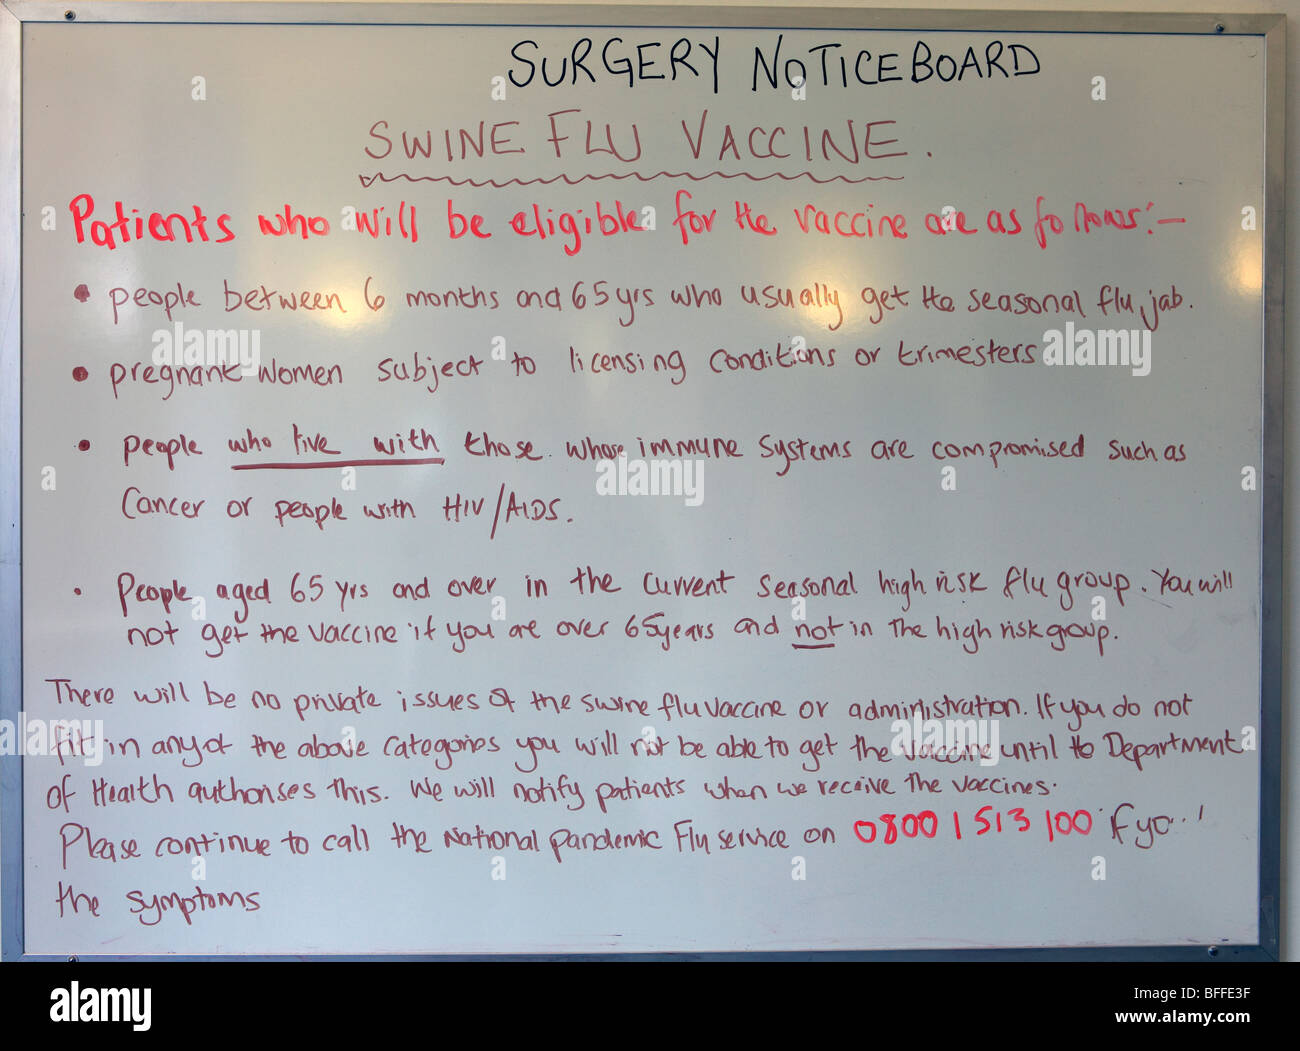 SURGERY NOTICEBOARD
SWINE FLU VACCINE.
Patients who will be eligible for the vaccine are as follows:-
• people between 6 months and 65yrs who usually get the seasonal flu jab.
• pregnant women subject to licensing conditions or trimesters
• people who live with those whose immune systems are compromised such as
Cancer or people with HIV/AIDS.
• People aged 65 yrs and over in the current seasonal high risk flu group. You will
not get the vaccine if you are over 65years and not in the high risk group.
There will be no private issues of the swine flu vaccine or administration. If you do not
fit in any of the above categories you will not be able to get the vaccine until the Department
of Health authorises this. We will notify patients when we receive the vaccines.
Please continue to call the National Pandemic Flu service on 0800 1 513 100 if
the symptoms
alamy
Image ID: BFFE3F
www.alamy.com